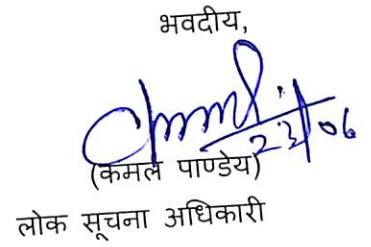 भवदीय,
23/06
(कमल पाण्डेय)
लोक सूचना अधिकारी